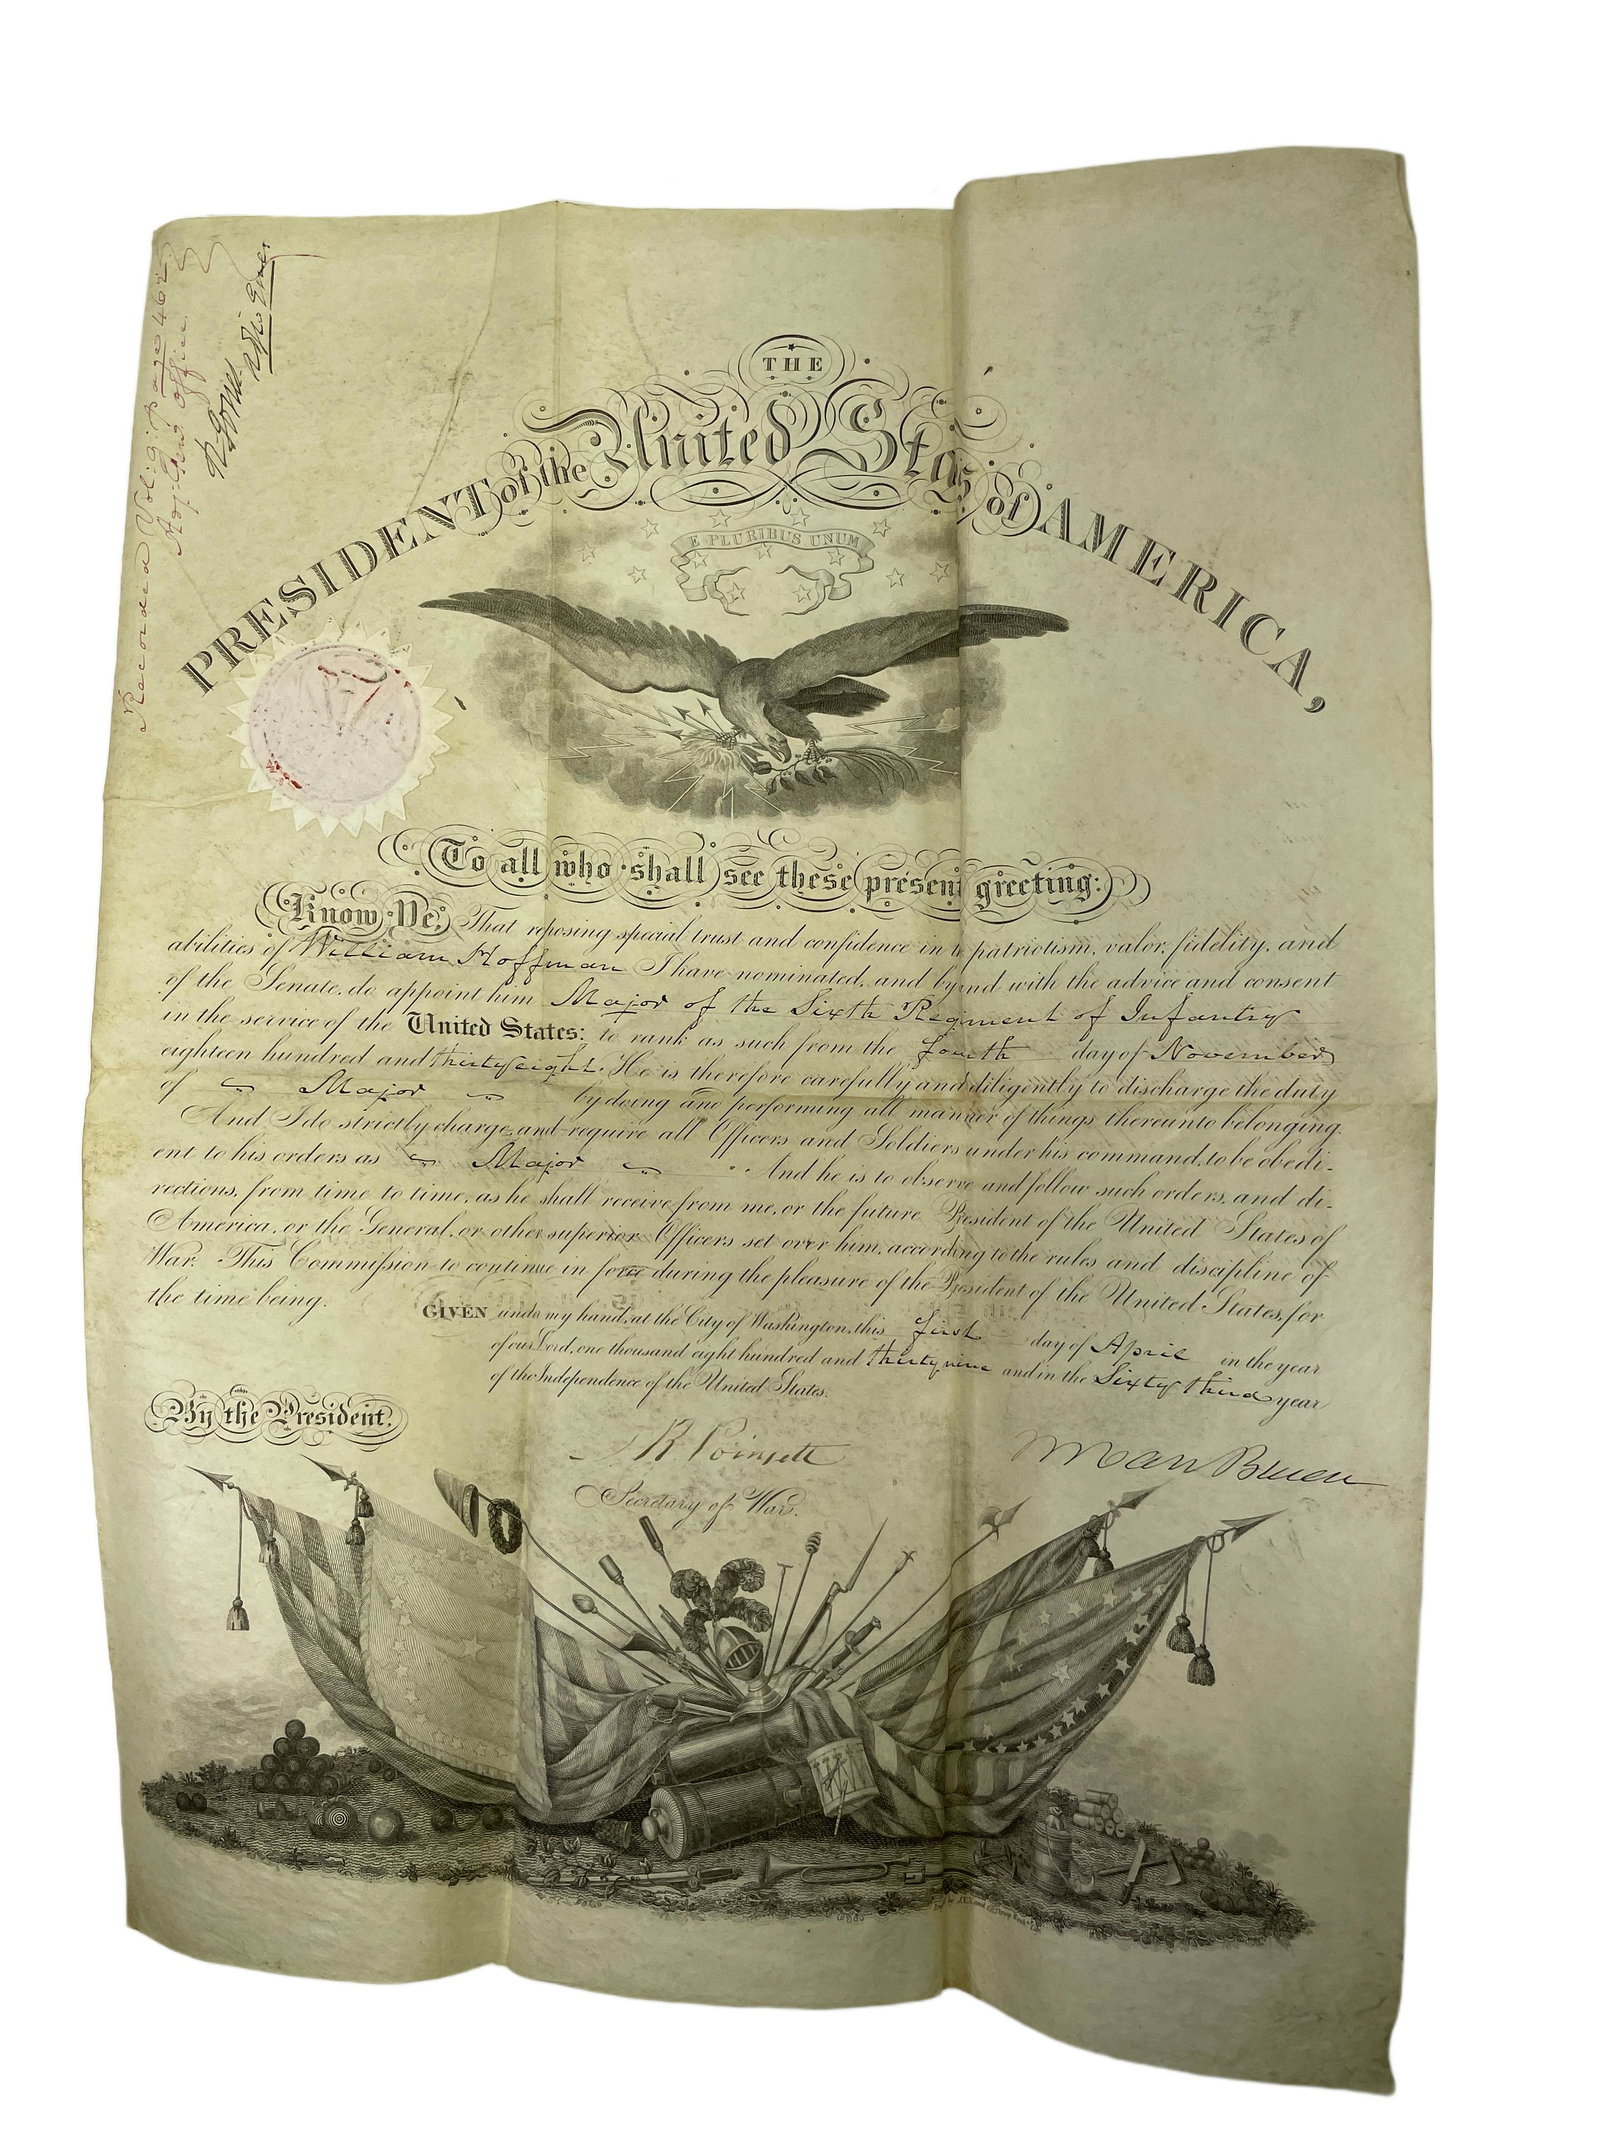 Recorded Vol: 9: page 462.
Adj: Gen's Office
R. Jones
Adjt. Genl.
THE
PRESIDENT of the United States of AMERICA,
E PLURIBUS UNUM
To all who shall see these present greeting:
Know Ye, That reposing special trust and confidence in patriotism, valor, fidelity, and
abilities of William Hoffman I have nominated, and by and with the advice and consent
of the Senate, do appoint him Major of the Sixth Regiment of Infantry
in the service of the United States: to rank as such from the fourth day of November
eighteen hundred and thirty eight. He is therefore carefully and diligently to discharge the duty
of Major by doing and performing all manner of things thereunto belonging.
And I do strictly charge, and require all Officers and Soldiers under his command, to be obedi-
ent to his orders as Major And he is to observe and follow such orders, and di-
rections, from time to time, as he shall receive from me, or the future President of the United States of
America, or the General, or other superior Officers set over him, according to the rules and discipline of
War. This Commission to continue in force during the pleasure of the President of the United States, for
the time being.
GIVEN under my hand, at the City of Washington, this first day of April in the year
of our Lord, one thousand eight hundred and thirty nine and in the Sixty third year
of the Independence of the United States.
By the President,
J R Poinsett
M Van Buren
Secretary of War.